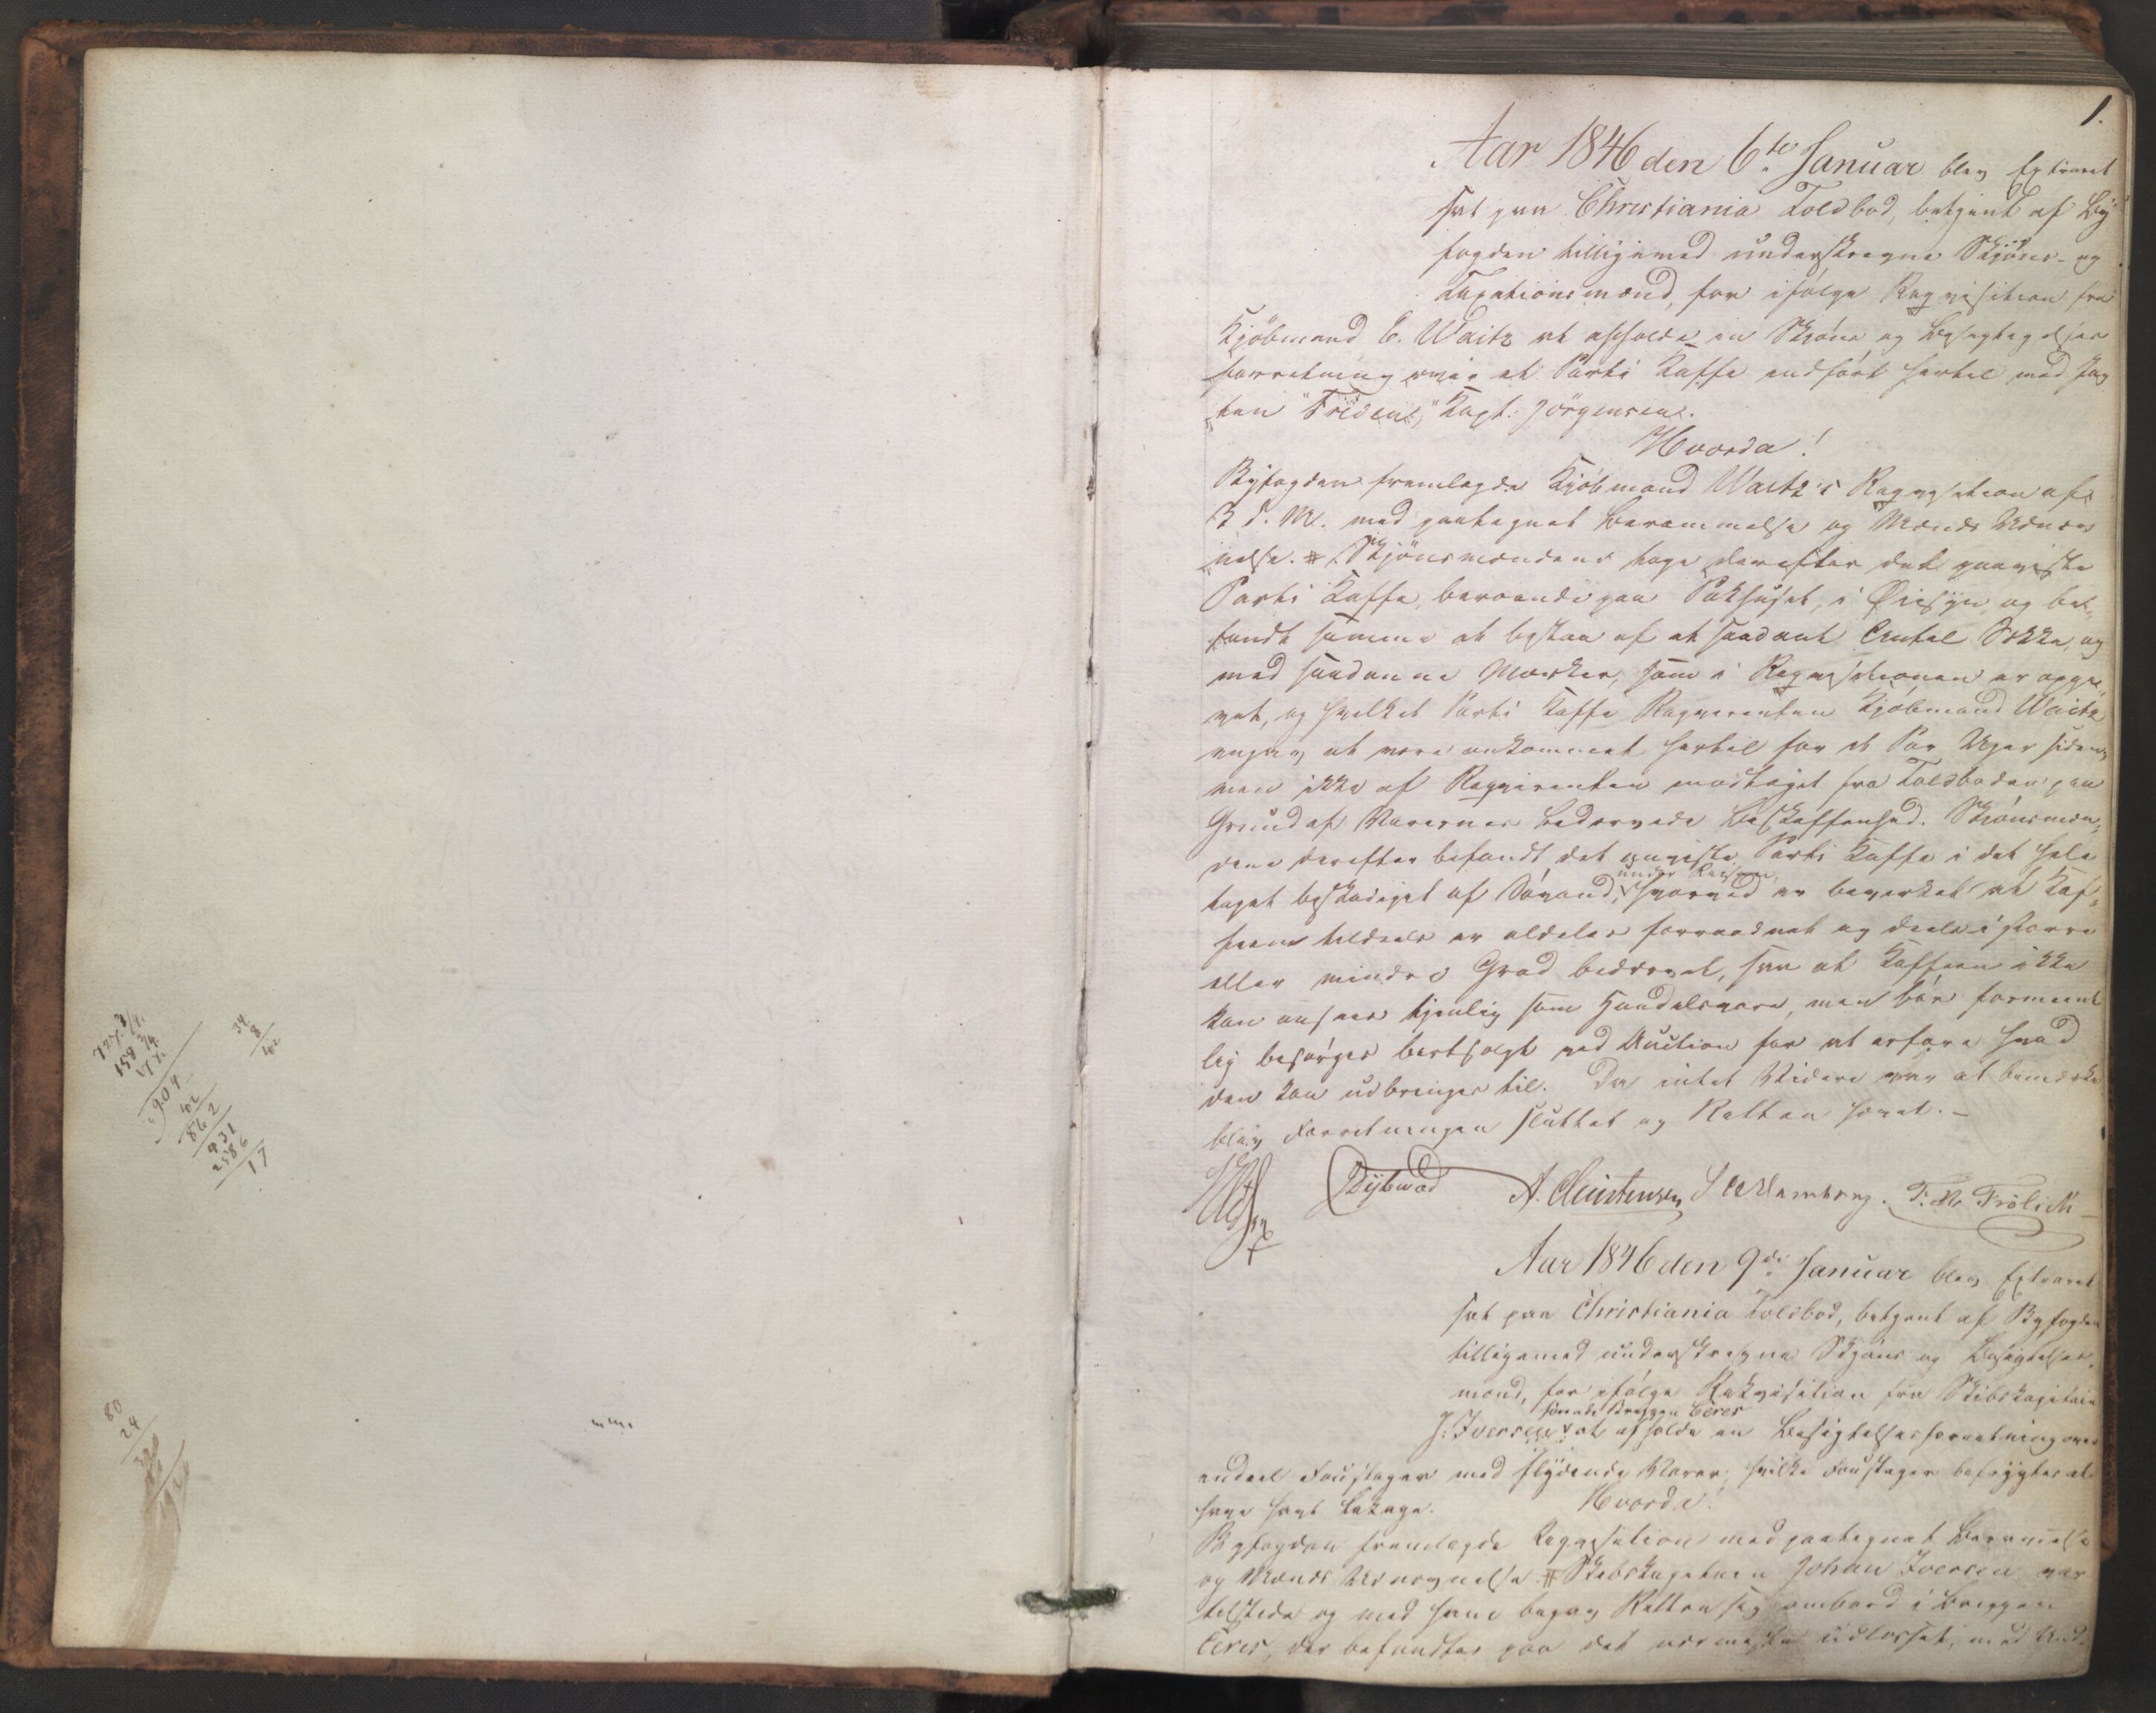 1.
Aar 1846 den 6te Januar blev Extraret
sat paa Christiania Toldbod, betjent af By
fogden tilligemed underskrevne Skjöns- og
Taxationsmænd, for ifölge Reqvisition fra
Kjöbmand C. Waitz at afholde en Skjöns og Besigtigelses
forretning over et Parti Kaffe indfört hertil med Jag
ten "Tridens," Capt: Jörgensen.
Hvorda!
Byfogden fremlagde Kjöbmand Waitz's Reqvisition af
3 d. M. med paategnet Berammelse og Mænds Udnæv
nelse. # Skjönsmændene toge derefter det paaviste
Parti Kaffe, beroende paa Pakhuset, i Öiesyn, og be-
fandt samme at bestaa af et saadant Antal Sække, og
med saadanne Mærker, som i Reqvisitionen er opgi-
vet, og hvilket Parti Kaffe Reqvirenten Kjöbmand Waitz
angav at være ankommet hertil for et Par Uger siden,
men ikke af Reqvirenten modtaget fra Toldboden paa
Grund af Varernes bedærvede Beskaffenhed. Skjönsmæn-
dene derefter befandt det paaviste Parti Kaffe i det hele
taget beskadiget af Sövand, under Reisen, hvorved er bevirket at Kaf-
feen tildeels er aldeles forraadnet og deels i större
eller mindre Grad bedærvet, saa at Kaffeen ikke
kan ansees tjenlig som Handelsvare, men bör formeent
lig besörges bortsolgt ved Auction for at erfare hvad
den kan udbringes til. Da intet Videre var at bemærke
blev Forretningen sluttet og Retten hævet. -
Dybwad A. Christensen T. M. Frölich
Aar 1846 den 9de Januar blev Extraret
sat paa Christiania Toldbod, betjent af Byfogden
tilligemed underskrevne Skjöns og Besigtelses-
mænd, for ifölge Rekvisition fra Skibskapitain
J. Iversen förende Briggen Ceres at afholde en Besigtelsesforretning over
endeel Foustager med flydende Varer, hvilke Foustager befrygtes at
have havt Lekage. Hvorda!
Byfogden fremlagde Reqvisition med paategnet Berammelse
og Mænds Udnævnelse. # Skibskapitain Johan Iversen var
tilstede og med ham begav Retten sig ombord i Briggen
Ceres, der befandtes paa det nærmeste udlosset, med Und-
727. 3/4.
158 3/4.
17 1/2
904
42
862
931
2586
17
34.
8
42
80
24
320